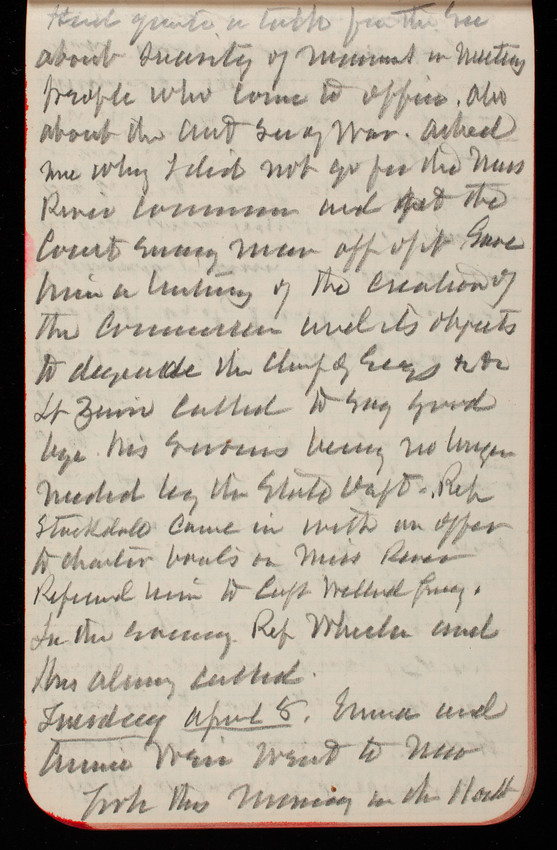 Had quite a talk for the Sec
about scarcity of manners in meeting
people who come to office. Also
about the Asst Secy War. Asked
me why I did not go for the Miss
River Commission and get the
Court many men off of it. Gave
him a history of the creation of
the Commission and its objects
to degrade the Chief of Engs &c
Lt Zinn called to say good
bye his services being no longer
needed by the State Dept. Rep
Stockdale came in with an offer
to charter boats on Miss River
Referred him to Capt Willard Engr.
In the evening Rep Wheeler and
Miss called.
Tuesday April 8. Emma and
Annie Weir went to New
York this morning on the